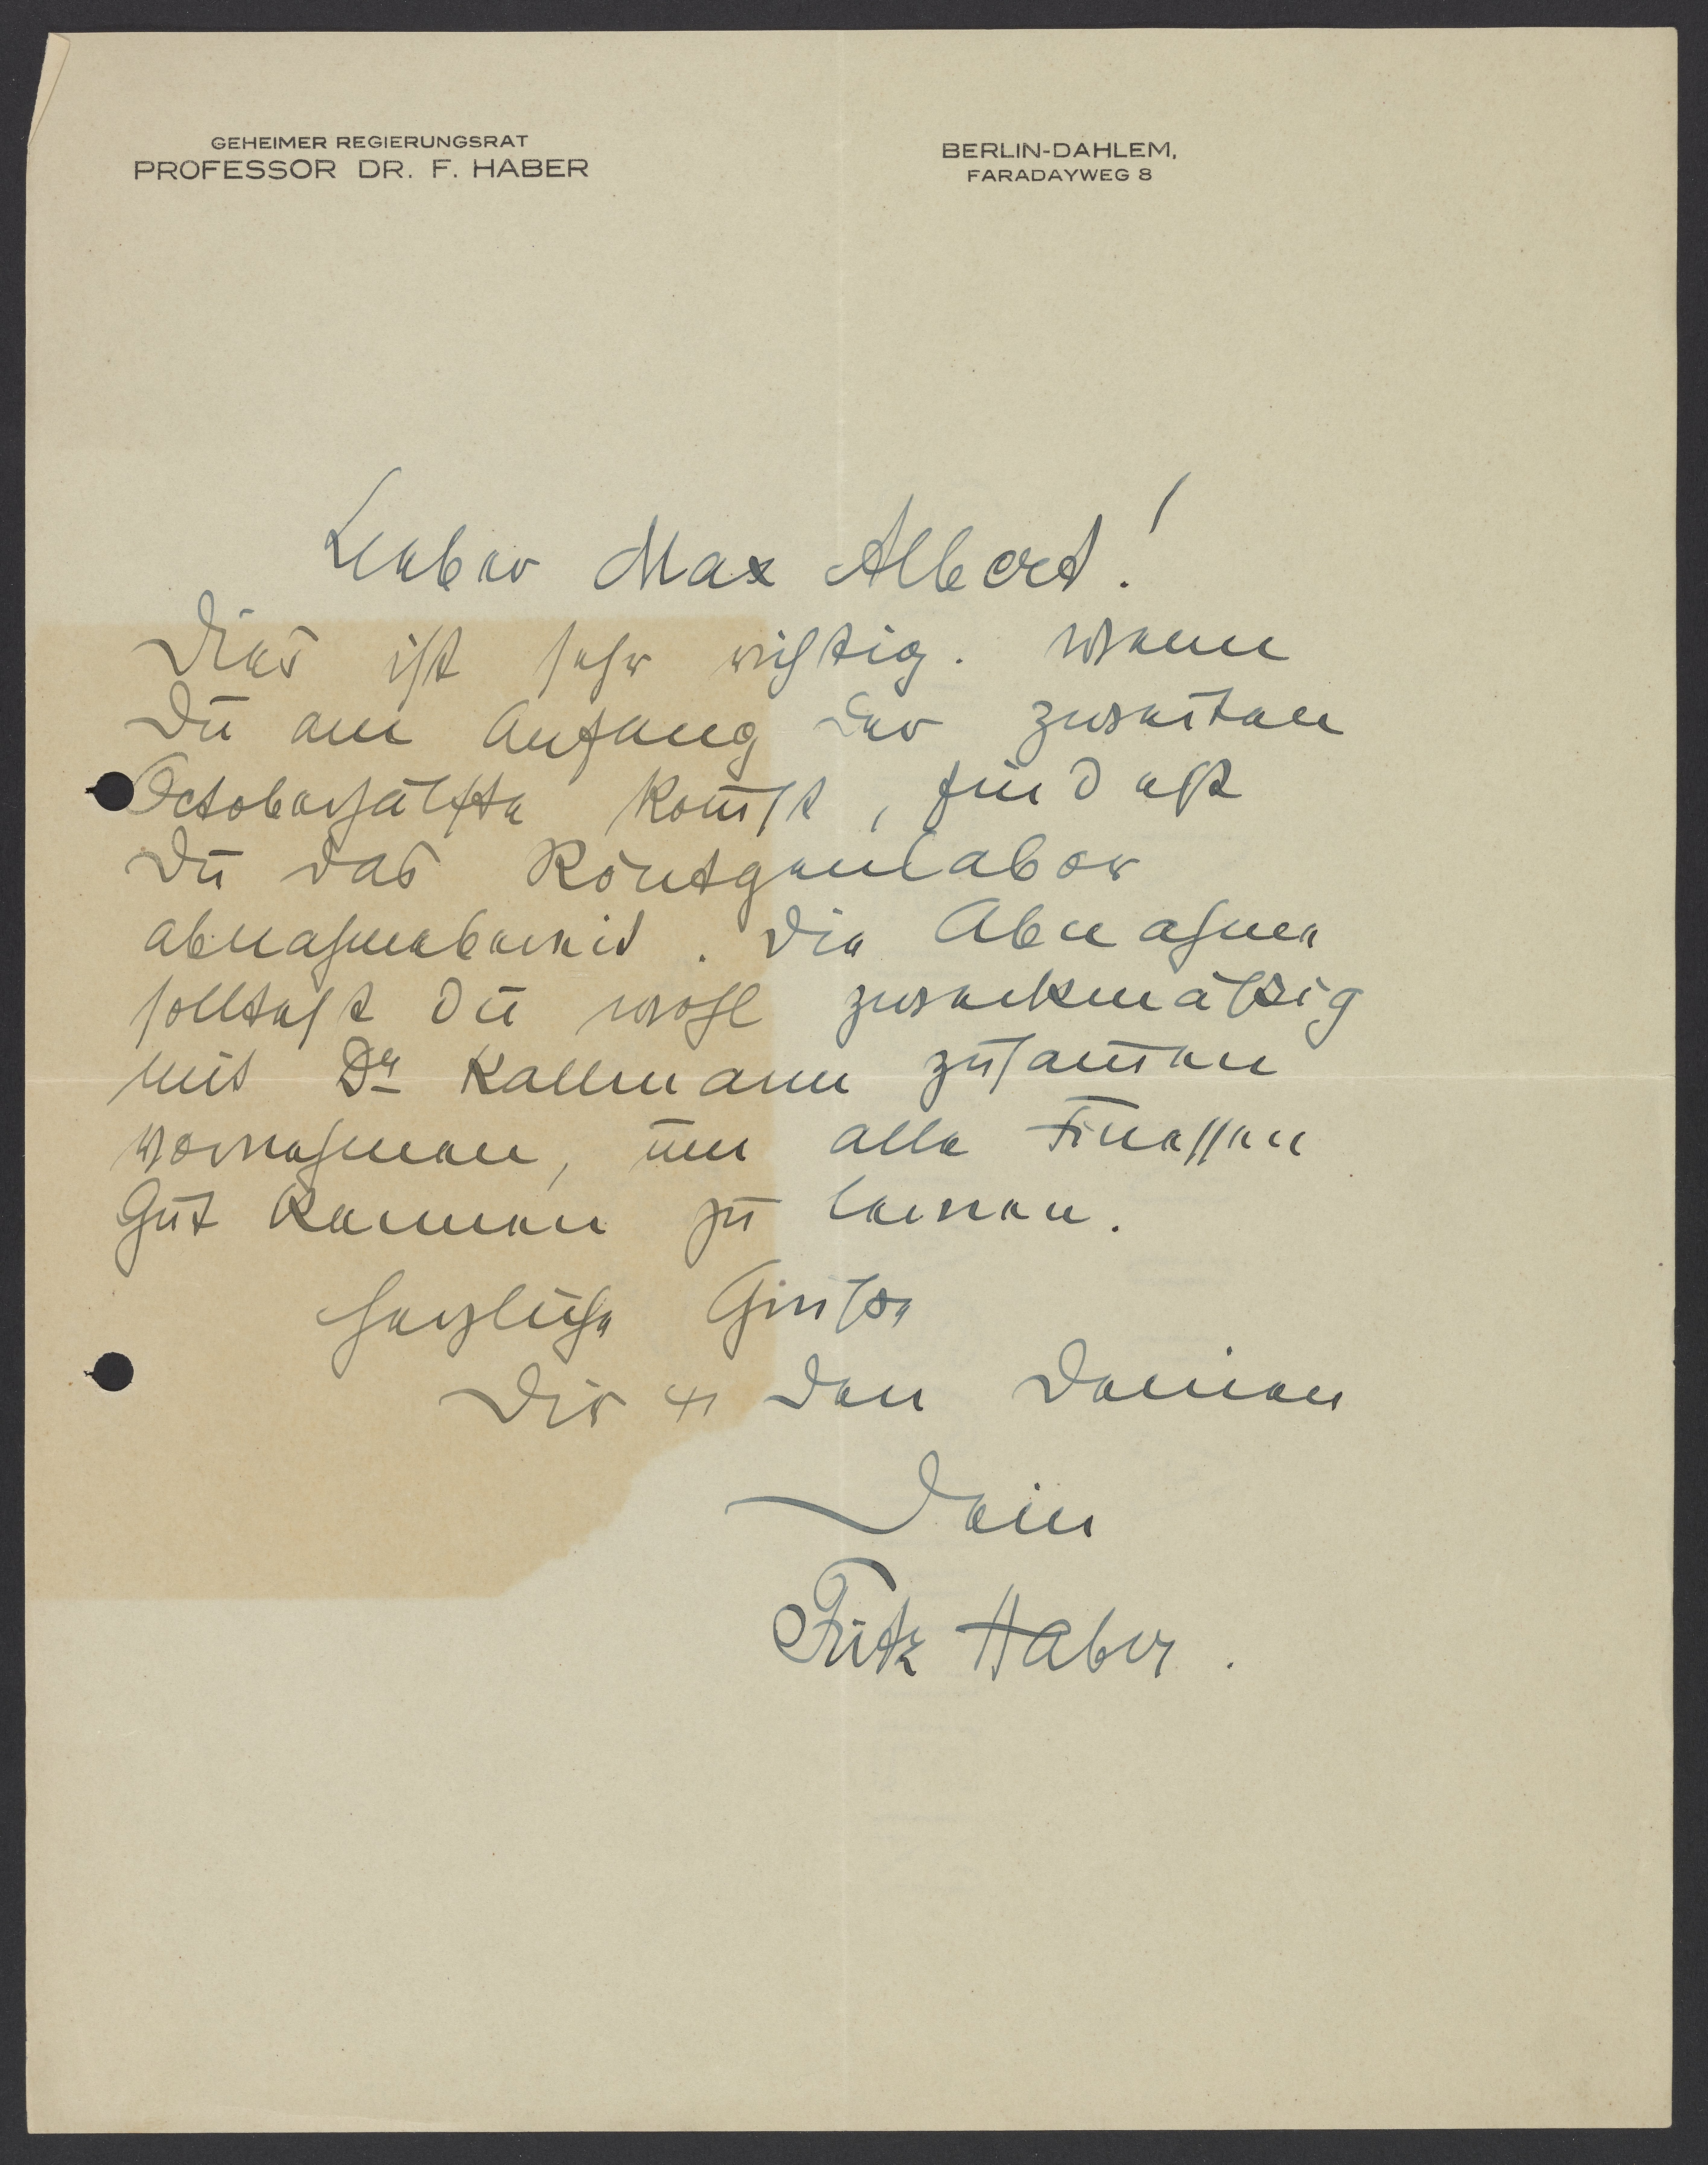 GEHEIMER REGIERUNGSRAT
PROFESSOR DR. F. HABER
BERLIN-DAHLEM,
FARADAYWEG 8
Lieber Max Albert!
Dies ist sehr wichtig. Wenn
Du am Anfang der zweiten
Octoberhälfte kom̄st, findest
Du das Röntgenlabor
abnahmebereit. Die Abnahme
solltest Du wohl zweckmäßig
mit Dr Kallmann zusam̄en
vornehmen, um alle Finessen
gut kennen zu lernen.
Herzliche Grüße
Dir u den Deinen
Dein
Fritz Haber.